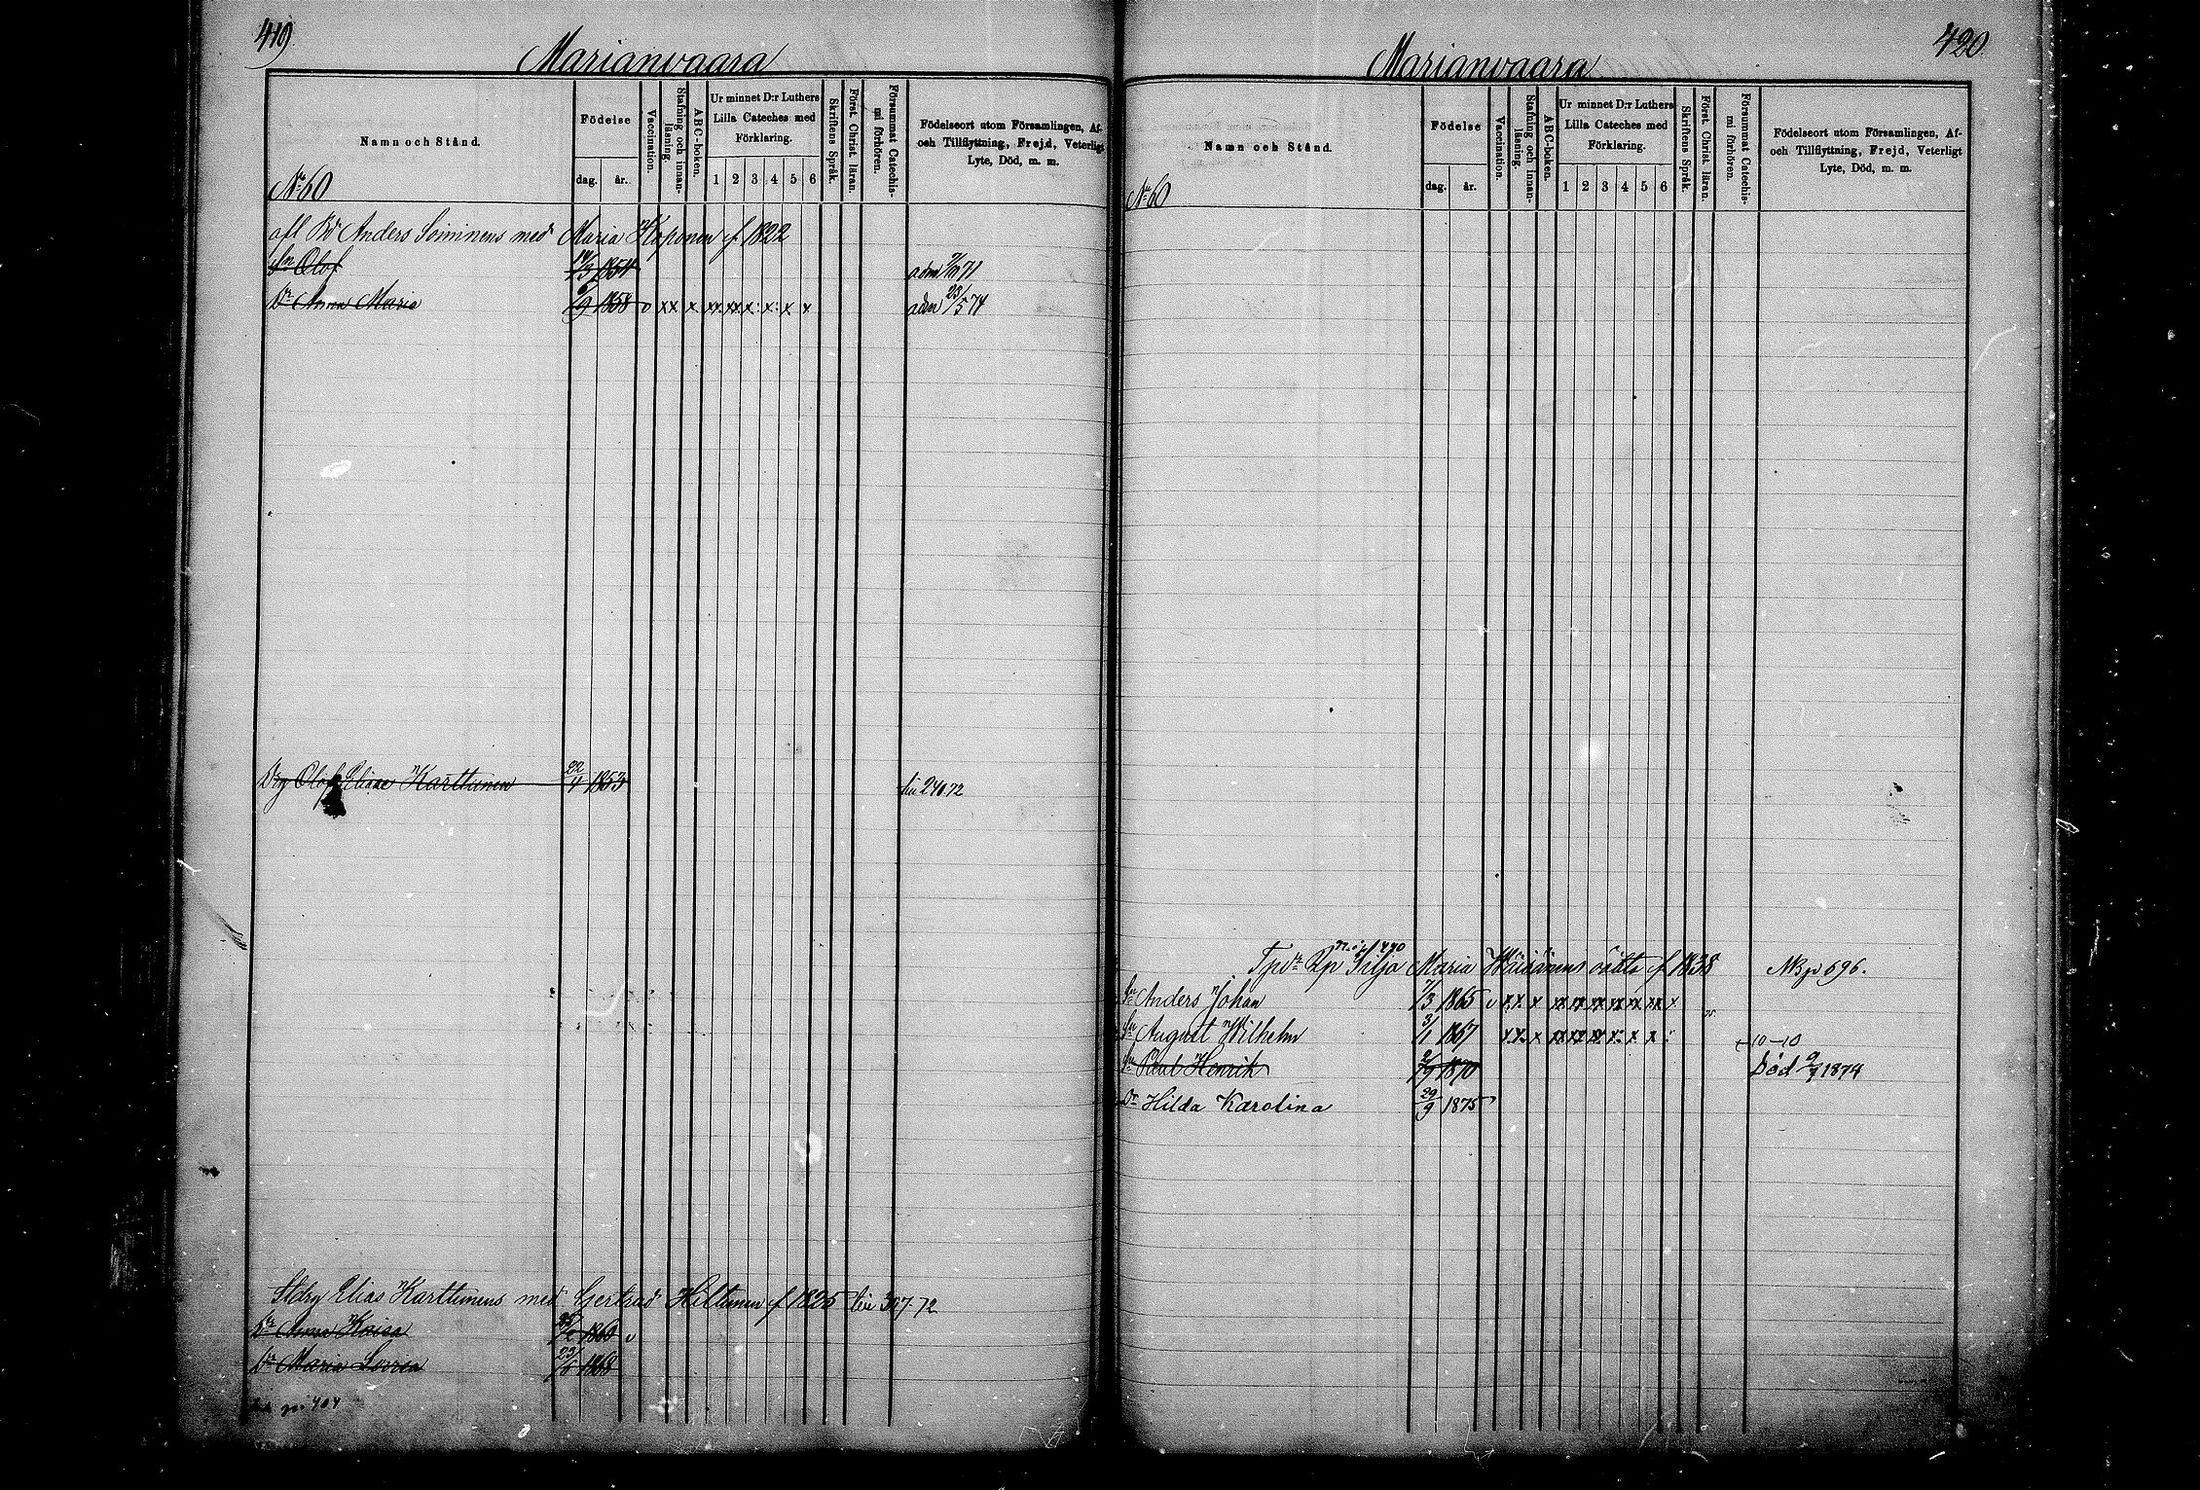 419
Marianvaara
Namn och Stånd.
Födelse
dag. år.
Vaccination.
Stafning och innan-
läsning.
ABC-boken.
Ur minnet D:r Luthers
Lilla Cateches med
Förklaring.
1 2 3 4 5 6
Skriftens Språk.
Först. Christ. läran.
Försummat Catechis-
mi förhören.
Födelseort utom Församlingen, Af-
och Tillflyttning, Frejd, Veterligt
Lyte, Död, m. m.
No 60
afl Anders Soininens med Maria Koponen f 1822
Sn Olof 1854 adm 71
Dr Anna Maria 6/9 1858 v xx x xx xx x x x x adm 23/5 74
Olof Eliae Karttunen 22/4 1853 liu 240.72
Elias Karttunens med Gertrud Hiltunen f 1825 liu 307-72
Dr Anna Kaisa v
Dr Maria Lovisa 1868
404
420
Marianvaara
Namn och Stånd.
Födelse
dag. år.
Vaccination.
Stafning och innan-
läsning.
ABC-boken.
Ur minnet D:r Luthers
Lilla Cateches med
Förklaring.
1 2 3 4 5 6
Skriftens Språk.
Först. Christ. läran.
Försummat Catechis-
mi förhören.
Födelseort utom Församlingen, Af-
och Tillflyttning, Frejd, Veterligt
Lyte, Död, m. m.
No 60
Silja Maria Väisänens oädta f 1838 696.
Sn Anders Johan 1865 v
Sn August Wilhelm 3/1 1867 10-10
Sn Paul Henrik 1870 Död 1874
Dr Hilda Karolina 29/9 1875